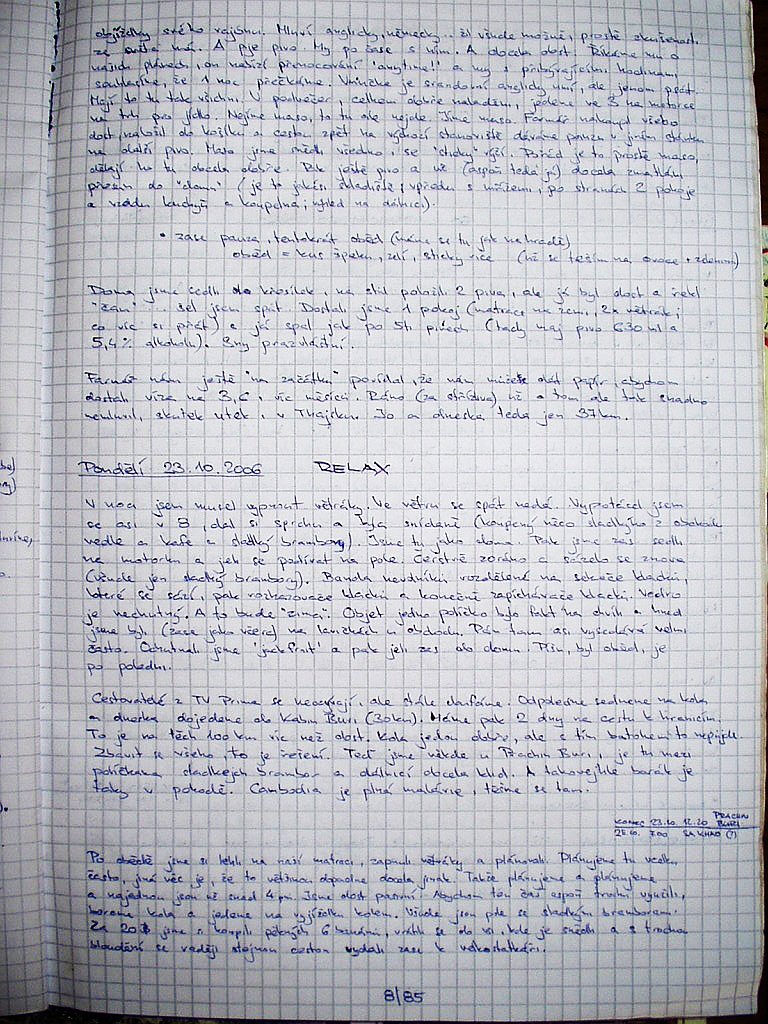 objížďky svého rajónu. Mluví anglicky, německy.. žil všude možně, prostě zkušenosti
ze světa má. A pije pivo. My po čase s ním. A docela dost. Říkáme mu o
našich plánech, on nabízí přenocování "anytime!" a my s přibývajícími hodinami
souhlasíme, že 1 noc přečkáme. je srandovní anglicky umí, ale jenom psát.
Mají to tu tak všichni. V podvečer, celkem dobře naladěni, jedeme ve 3 na motorce
na trh pro jídlo. Nejíme maso, to tu ale nejde. Jíme maso. Farmář nakoupil všeho
dost, naložil do košíku a cestou zpět na výchozí stanoviště dáváme pauzu v jiném stánku
na další pivo. Maso jsme snědli všechno, se "sticky" rýží. Pořád je to prostě maso,
dělají ho tu docela dobře. Pak ještě pivo a už (aspoň teda já) docela zmatkám
přesun do "domu" (je to jakési skladiště, vpředu s mřížemi, po stranách 2 pokoje
a vzadu kuchyň a koupelna, výhled na dálnici).
• zase pauza, tentokrát oběd (máme se tu jak na hradě)
oběd = kus špeku, zelí, sticky rice (už se těším na ovoce + zeleninu)
Doma jsme sedli do křesílek, na stůl položili 2 piva, ale já byl dost a řekl
"čau" .. šel jsem spát. Dostali jsme 1 pokoj (matrace na zemi, 2x větrák i
co víc si přát) a já spal jak po 5ti pivech (tady maj pivo 630 ml a
5,4% alkoholu). Sny prazvláštní.
Farmář nám ještě "na začátku" povídal, že nám může dát papír, abychom
dostali víza na 3, 6, víc měsíců. Ráno (za střízliva) už o tom ale tak snadno
nemluvil, skutek utek, v Thajsku. Jo a dneska teda jen 37km.
Pondělí 23.10.2006 RELAX
V noci jsem musel vypnout větráky. Ve větru se spát nedá. Vypotácel jsem
se asi v 8, dal si sprchu a byla snídaně (koupený něco sladkýho z obchodu
vedle a kafe a sladký brambory). Jsme tu jako doma. Pak jsme zas sedli
na motorku a jeli se podívat na pole. Čerstvě zoráno a sázelo se znova
(všude jen sladký brambory). Banda nevolníků rozdělená na sekače klacků,
které se sází, pak rozhazovače klacků a konečně zapichávače klacků. Vedro
je nechutný. A to bude "zima". Objet jedno políčko bylo fakt na chvíli a hned
jsme byli (zase jako včera) na lavičkách u obchodu. Pán tam asi vysedává velmi
často. Ochutnali jsme 'jackfruit' a pak jeli zas do domu. Píšu, byl oběd, je
po poledni.
Cestovatelé z TV Prima se neozývají, ale stále doufáme. Odpoledne sedneme na kola
a dneska dojedeme do Kabin Buri (30km). Máme pak 2 dny na cestu k hranicím.
To je na těch 100 km víc než dost. Kola jedou dobře, ale s tím batohem to nepůjde.
Zbavit se všeho, to je řešení. Teď jsme někde u Prachin Buri, je tu mezi
políčkama sladkejch brambor a dálnicí docela klid. A takovejhle barák je
taky v pohodě. Cambodia je plná malárie, těšíme se tam.
KONEC 23.10. 12.20 PRACHIN BURI
7.00 SA KHAO (?)
Po obědě jsme si lehli na naší matraci, zapnuli větráky a plánovali. Plánujeme tu vcelku
často, jiná věc je, že to většinou dopadne docela jinak. Takže plánujeme a plánujeme
a najednou jsou už snad 4 pm. Jsme dost pasivní. Abychom ten čas aspoň trochu využili,
bereme kola a jedeme na vyjížďku kolem. Všude jsou pole se sladkým bramborem.
Za 20 ฿ jsme si koupili pěkných 6 banánů, vrátili se do vsi, kde je snědli a s trochu
bloudění se raději stejnou cestou vydali zase k velkostatkáři.
8/85